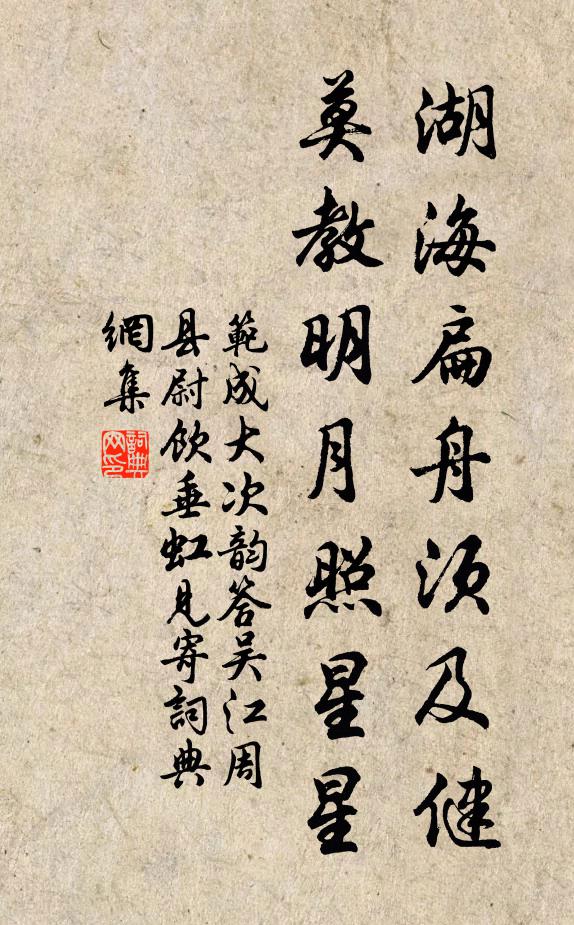 湖海扁舟须及健
莫教明月照星星
範成大次韵答吴江周
县尉饮垂虹见寄詞典
網集
詞典
网印